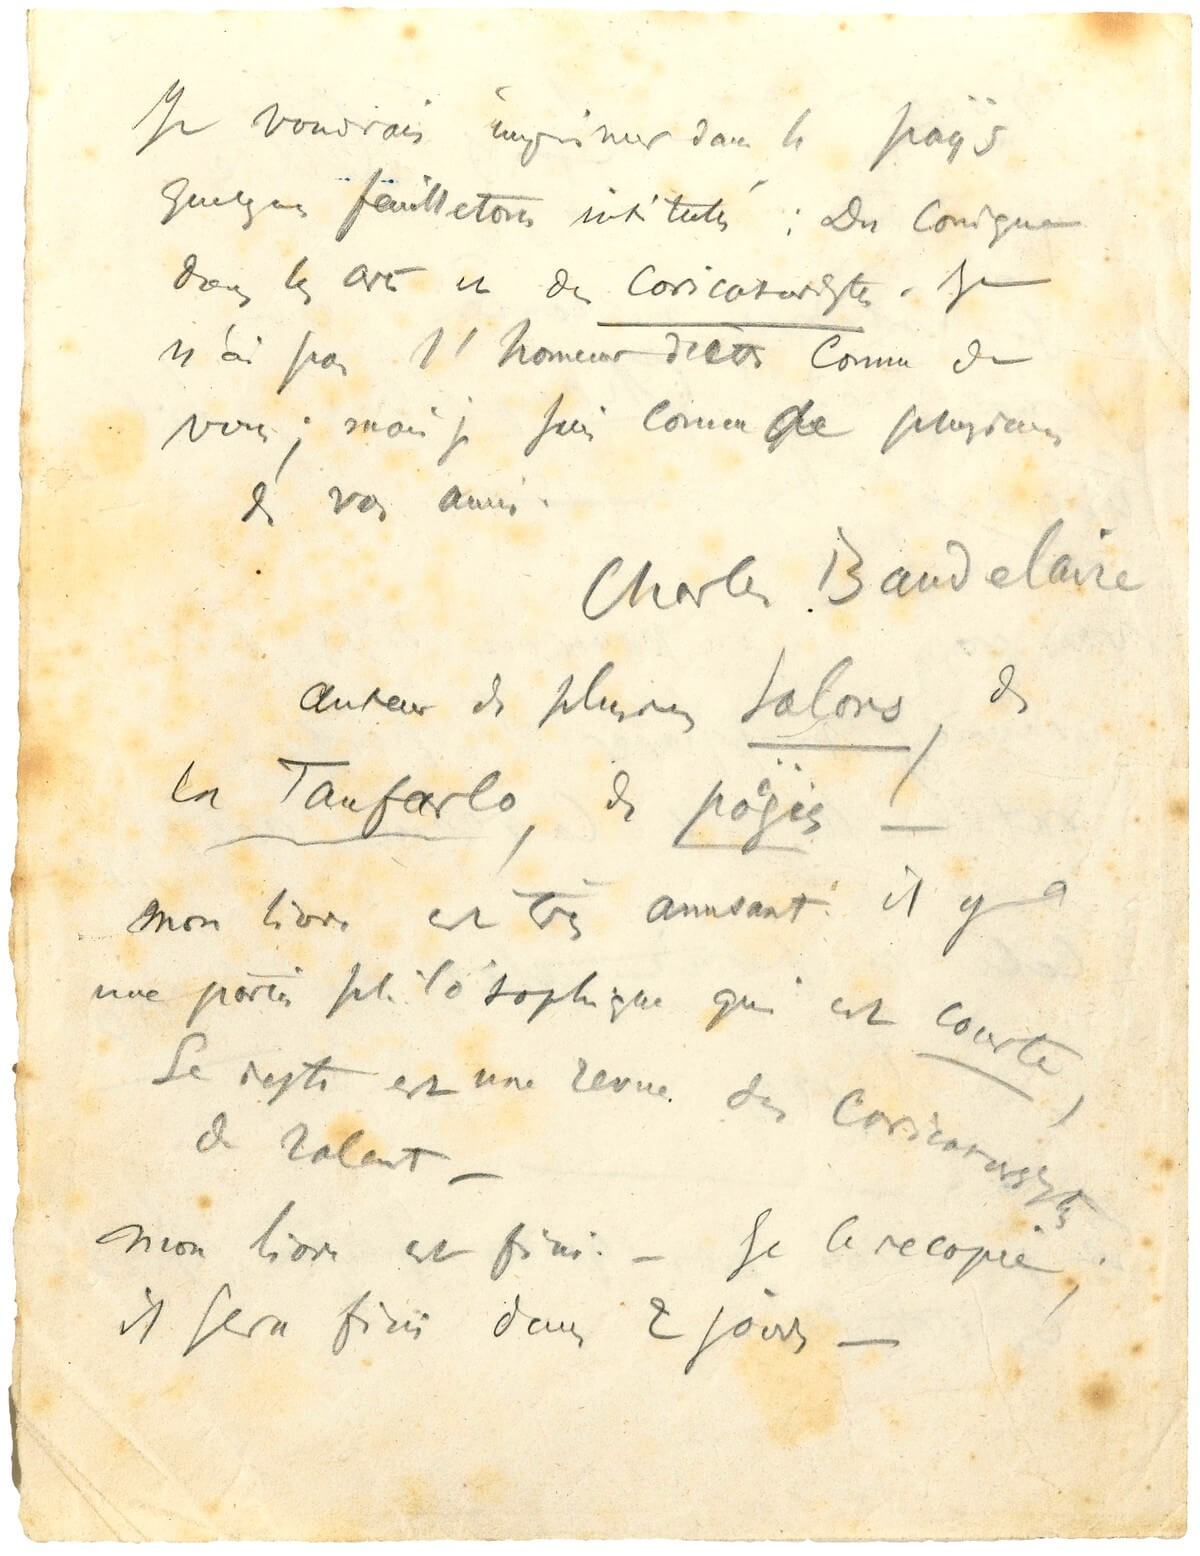 Je voudrais imprimer dans le pays
quelques feuilletons intitulés : Du Comique
dans les arts et des Caricaturistes. Je
n'ai pas l'honneur d'être connu de
vous ; mais je suis connu de plusieurs
de vos amis.
Charles Baudelaire
auteur de plusieurs Salons, de
la Fanfarlo, de poësies —
mon livre est très amusant. il y a
une partie philosophique qui est courte,
Le reste est une revue des Caricaturistes
de talent —
mon livre est fini. — Je le recopie ;
il sera fini dans 2 jours —